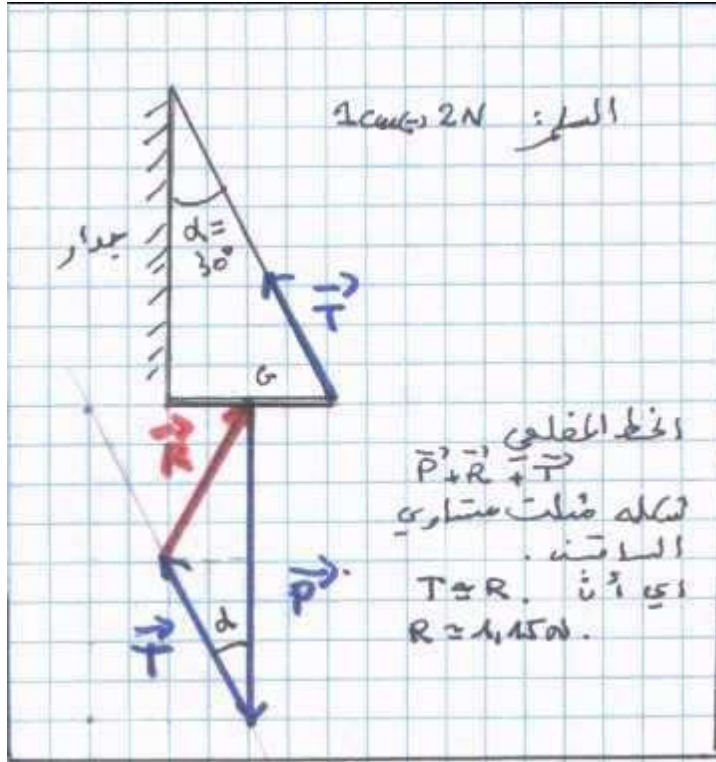 السلم: 1cm ↔ 2N
جدار
α=
30°
T
G
R
الخط المضلعي
P + R + T
شكله مثلث متساوي
الساقين.
اي أن T ≃ R.
R ≃ 1,15N.
P
α
T